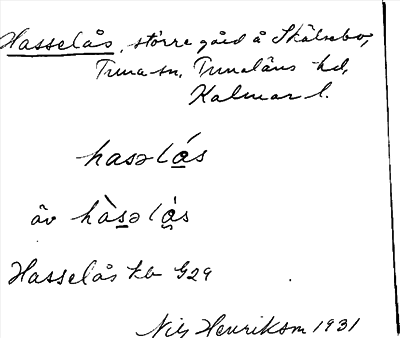 Hasselås, större gård å Skälsebo,
Tuna sn, Tunaläns hd,
Kalmar l.
hasəlá̱s
äv hàs̱əlá̱s
Hasselås kb G29
Nils Henriksson 1931